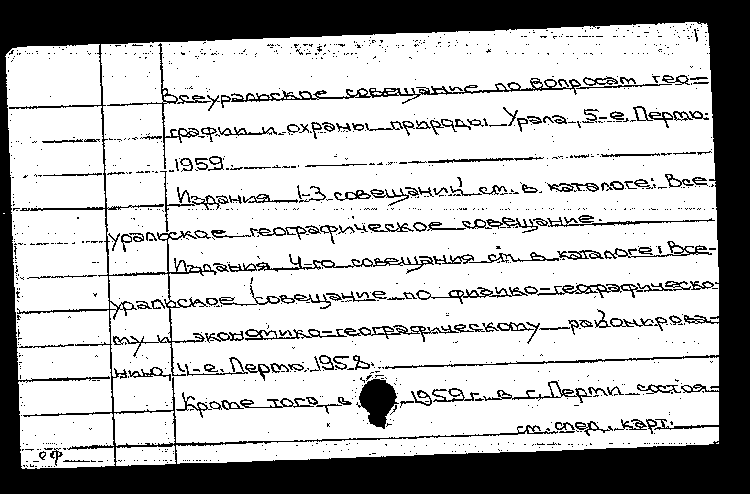 Всеуральское совещание по вопросам гео=
графии и охраны природы Урала, 5-е. Пермь.
1959.
Издания 1-3 совещаний см. в каталоге: Все-
уральское географическое совещание.
Издания 4-го совещания см. в каталоге: Все-
уральское совещание по физико-географическо-
му и экономико-географическому районирова-
нию, 4-е. Пермь. 1958.
Кроме того, в 1959 г. в г. Перми состоя-
см. след. карт.
еф